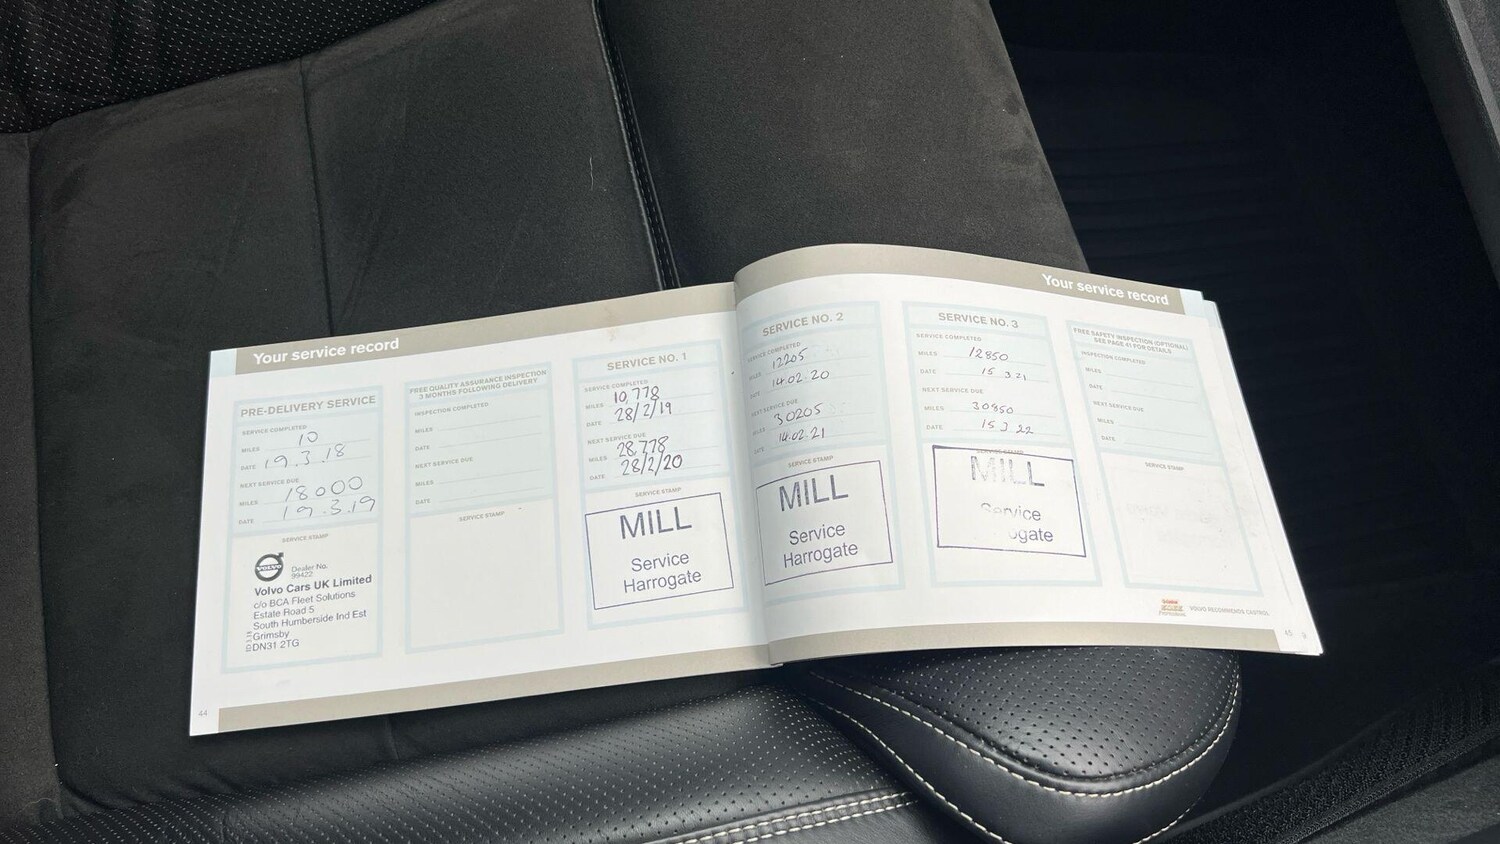 Your service record
PRE-DELIVERY SERVICE
SERVICE COMPLETED
MILES 10
DATE 19.3.18
NEXT SERVICE DUE
MILES 18000
DATE 19.3.19
SERVICE STAMP
VOLVO
Dealer No.
99422
Volvo Cars UK Limited
c/o BCA Fleet Solutions
Estate Road 5
South Humberside Ind Est
Grimsby
DN31 2TG
44
FREE QUALITY ASSURANCE INSPECTION
3 MONTHS FOLLOWING DELIVERY
INSPECTION COMPLETED
MILES
DATE
NEXT SERVICE DUE
MILES
DATE
SERVICE STAMP
SERVICE NO. 1
SERVICE COMPLETED
MILES 10,778
DATE 28/2/19
NEXT SERVICE DUE
MILES 28,778
DATE 28/2/20
SERVICE STAMP
MILL
Service
Harrogate
Your service record
SERVICE NO. 2
SERVICE COMPLETED
MILES 12205
DATE 14.02.20
NEXT SERVICE DUE
MILES 30205
DATE 14.02.21
SERVICE STAMP
MILL
Service
Harrogate
SERVICE NO. 3
SERVICE COMPLETED
MILES 12850
DATE 15 3.21
NEXT SERVICE DUE
MILES 30850
DATE 15 3 22
SERVICE STAMP
MILL
Service
ogate
FREE SAFETY INSPECTION (OPTIONAL)
SEE PAGE 41 FOR DETAILS
INSPECTION COMPLETED
MILES
DATE
NEXT SERVICE DUE
MILES
DATE
SERVICE STAMP
VOLVO RECOMMENDS CASTROL
45